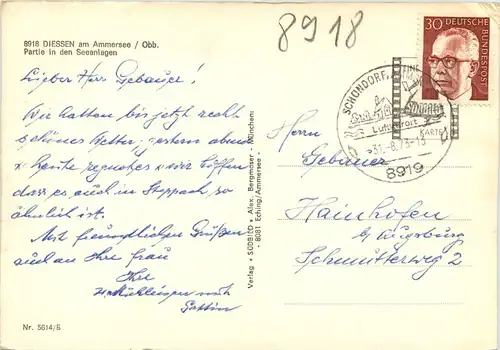 8918
8918 DIESSEN am Ammersee / Obb.
Partie in den Seeanlagen
Lieber Herr Gebauer!
Wir hatten bis jetzt recht
schönes Wetter, gestern abend
u. heute regnet es u. wir hoffen
dass es auch in Steppach so
ähnlich ist.
Mit freundlichen Grüßen
auch an Ihre Frau
Ihr
Gattin
Nr. 5614/S
Verlag · SÜDBILD · Alex. Bergmoser · München
8081 Eching/Ammersee
30 DEUTSCHE BUNDESPOST
SCHONDORF, AMMERSEE
Luftkurort
KARTE
31.-8.73-13
8919
Herrn
Gebauer
Hainhofen
b/ Augsburg
Schmutterweg 2